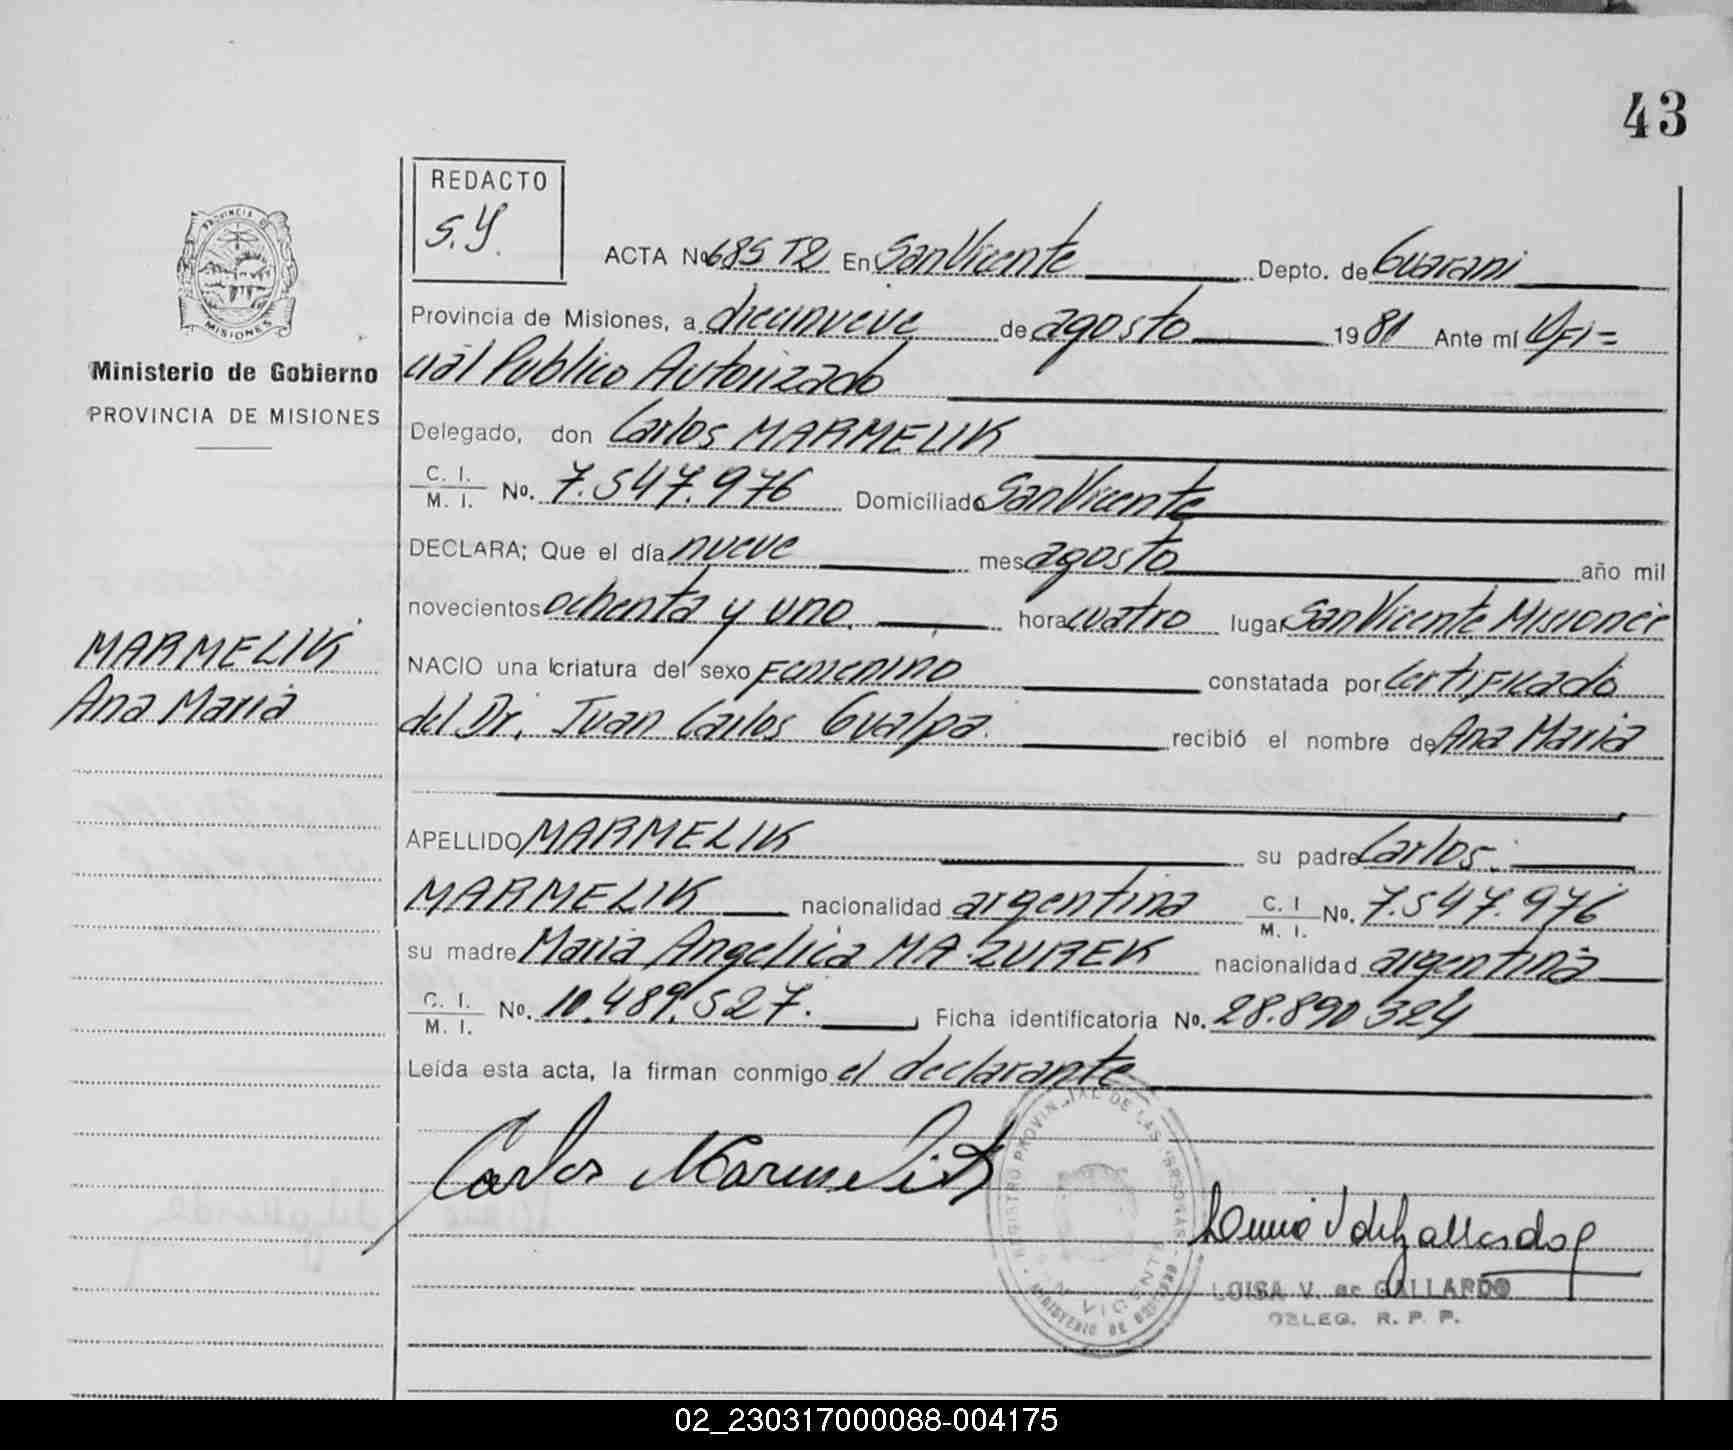 43
REDACTO
S.Y.
PROVINCIA DE
MISIONES
Ministerio de Gobierno
PROVINCIA DE MISIONES
ACTA Nº 685 T2 En San Vicente Depto. de Guarani
Provincia de Misiones, a diecinueve de agosto 1981 Ante mí Ofi=
cial Publico Autorizado
Delegado, don Carlos MARMELIK
C. I. / M. I. No. 7.547.976 Domiciliado San Vicente
DECLARA; Que el día nueve mes agosto año mil
novecientos ochenta y uno. hora cuatro lugar San Vicente Misiones
NACIO una criatura del sexo Femenino constatada por Certificado
del Dr. Juan Carlos Gualpa. recibió el nombre de Ana Maria
MARMELIK
Ana Maria
APELLIDO MARMELIK su padre Carlos
MARMELIK nacionalidad argentina C. I / M. I. No. 7.547.976
su madre Maria Angelica MAZUREK nacionalidad argentina
C. I. / M. I. No. 10.489.527. Ficha identificatoria No. 28.890.324
Leída esta acta, la firman conmigo el declarante
Carlos Marmelik
REGISTRO PROVINCIAL DE LAS PERSONAS
MINISTERIO DE GOBIERNO
VICENTE
LUISA V. de GALLARDO
DELEG. R. P. P.
02_230317000088-004175